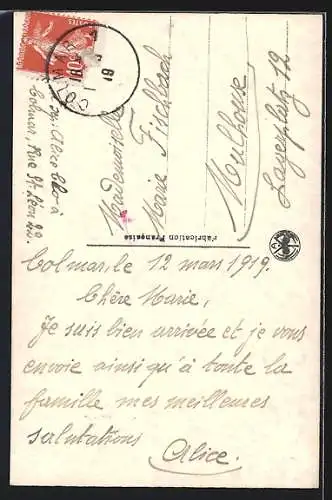 Colmar, le 12 mars 1919.
Chère Marie,
Je suis bien arrivée et je vous
envoie ainsi qu'à toute la
famille mes meilleures
salutations
Alice.
Mademoiselle
Marie Fischbach
Mulhouse
Lagerplatz 12
Fabrication Française
Alice
à
Colmar, Rue St. Léon 22.
COLMAR
19
10